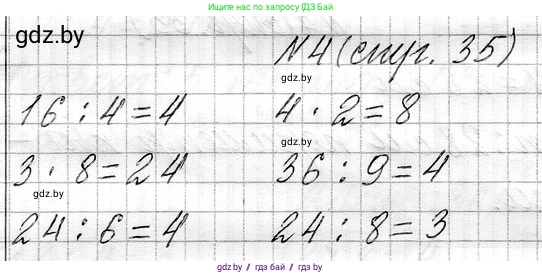 Ищите нас по запросу ГДЗ Бай
gdz.by
№4 (стр. 35)
gdz.by
16 : 4 = 4
4 · 2 = 8
gdz.by
3 · 8 = 24
36 : 9 = 4
gdz.by
24 : 6 = 4
24 : 8 = 3
gdz.by / гдз.бай / gdz.by / гдз бай